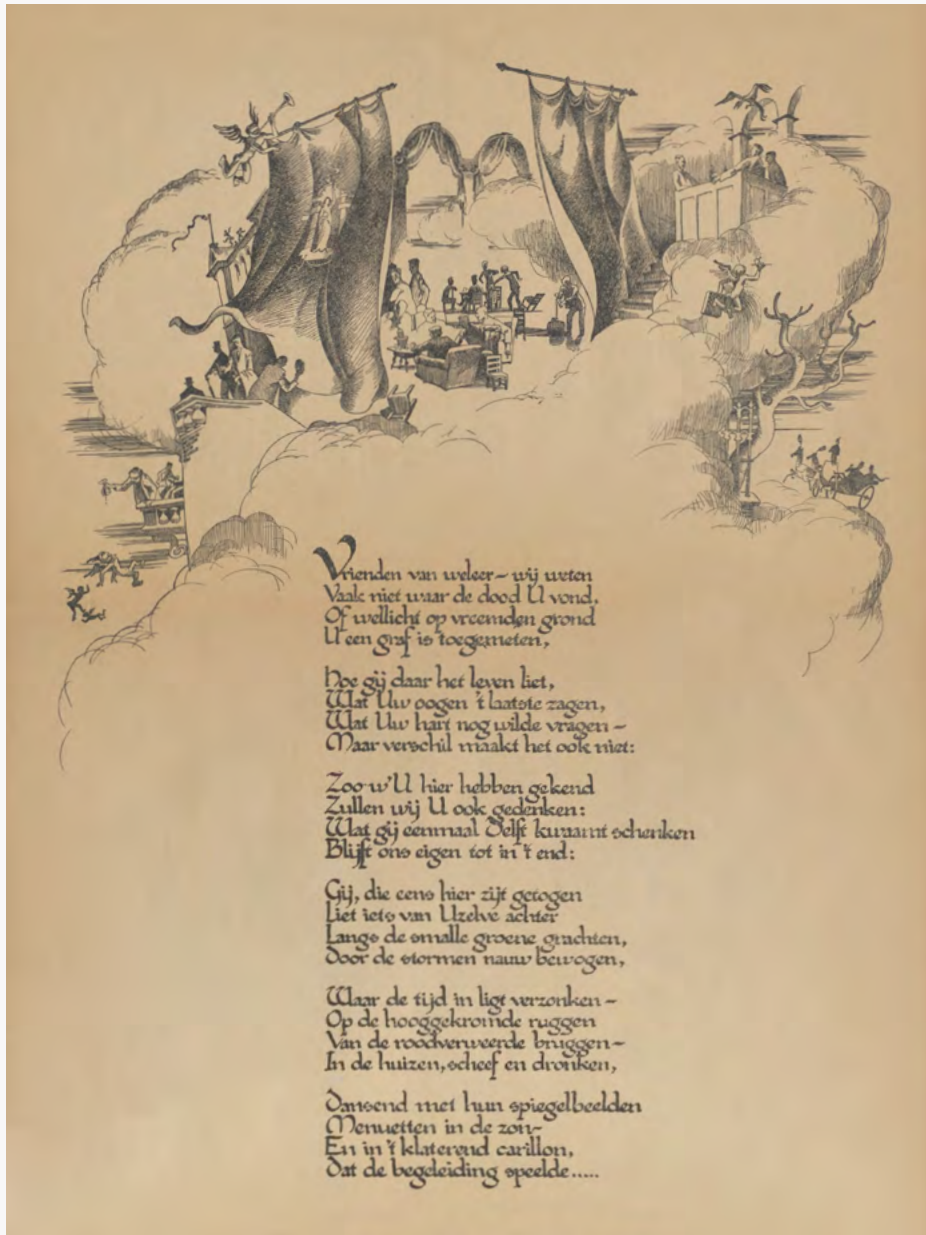 Vrienden van weleer – wij weten
Vaak niet waar de dood U vond,
Of wellicht op vreemden grond
U een graf is toegemeten,
Hoe gij daar het leven liet,
Wat Uw oogen 't laatste zagen,
Wat Uw hart nog wilde vragen –
Maar verschil maakt het ook niet:
Zoo w' U hier hebben gekend
Zullen wij U ook gedenken:
Wat gij eenmaal Delft kwaamt schenken
Blijft ons eigen tot in 't end:
Gij, die eens hier zijt getogen
Liet iets van Uzelve achter
Langs de smalle groene grachten,
Door de stormen nauw bewogen,
Waar de tijd in ligt verzonken –
Op de hooggekromde ruggen
Van de roodverweerde bruggen –
In de huizen, scheef en dronken,
Dansend met hun spiegelbeelden
Menuetten in de zon –
En in 't klaterend carillon,
Dat de begeleiding speelde.....